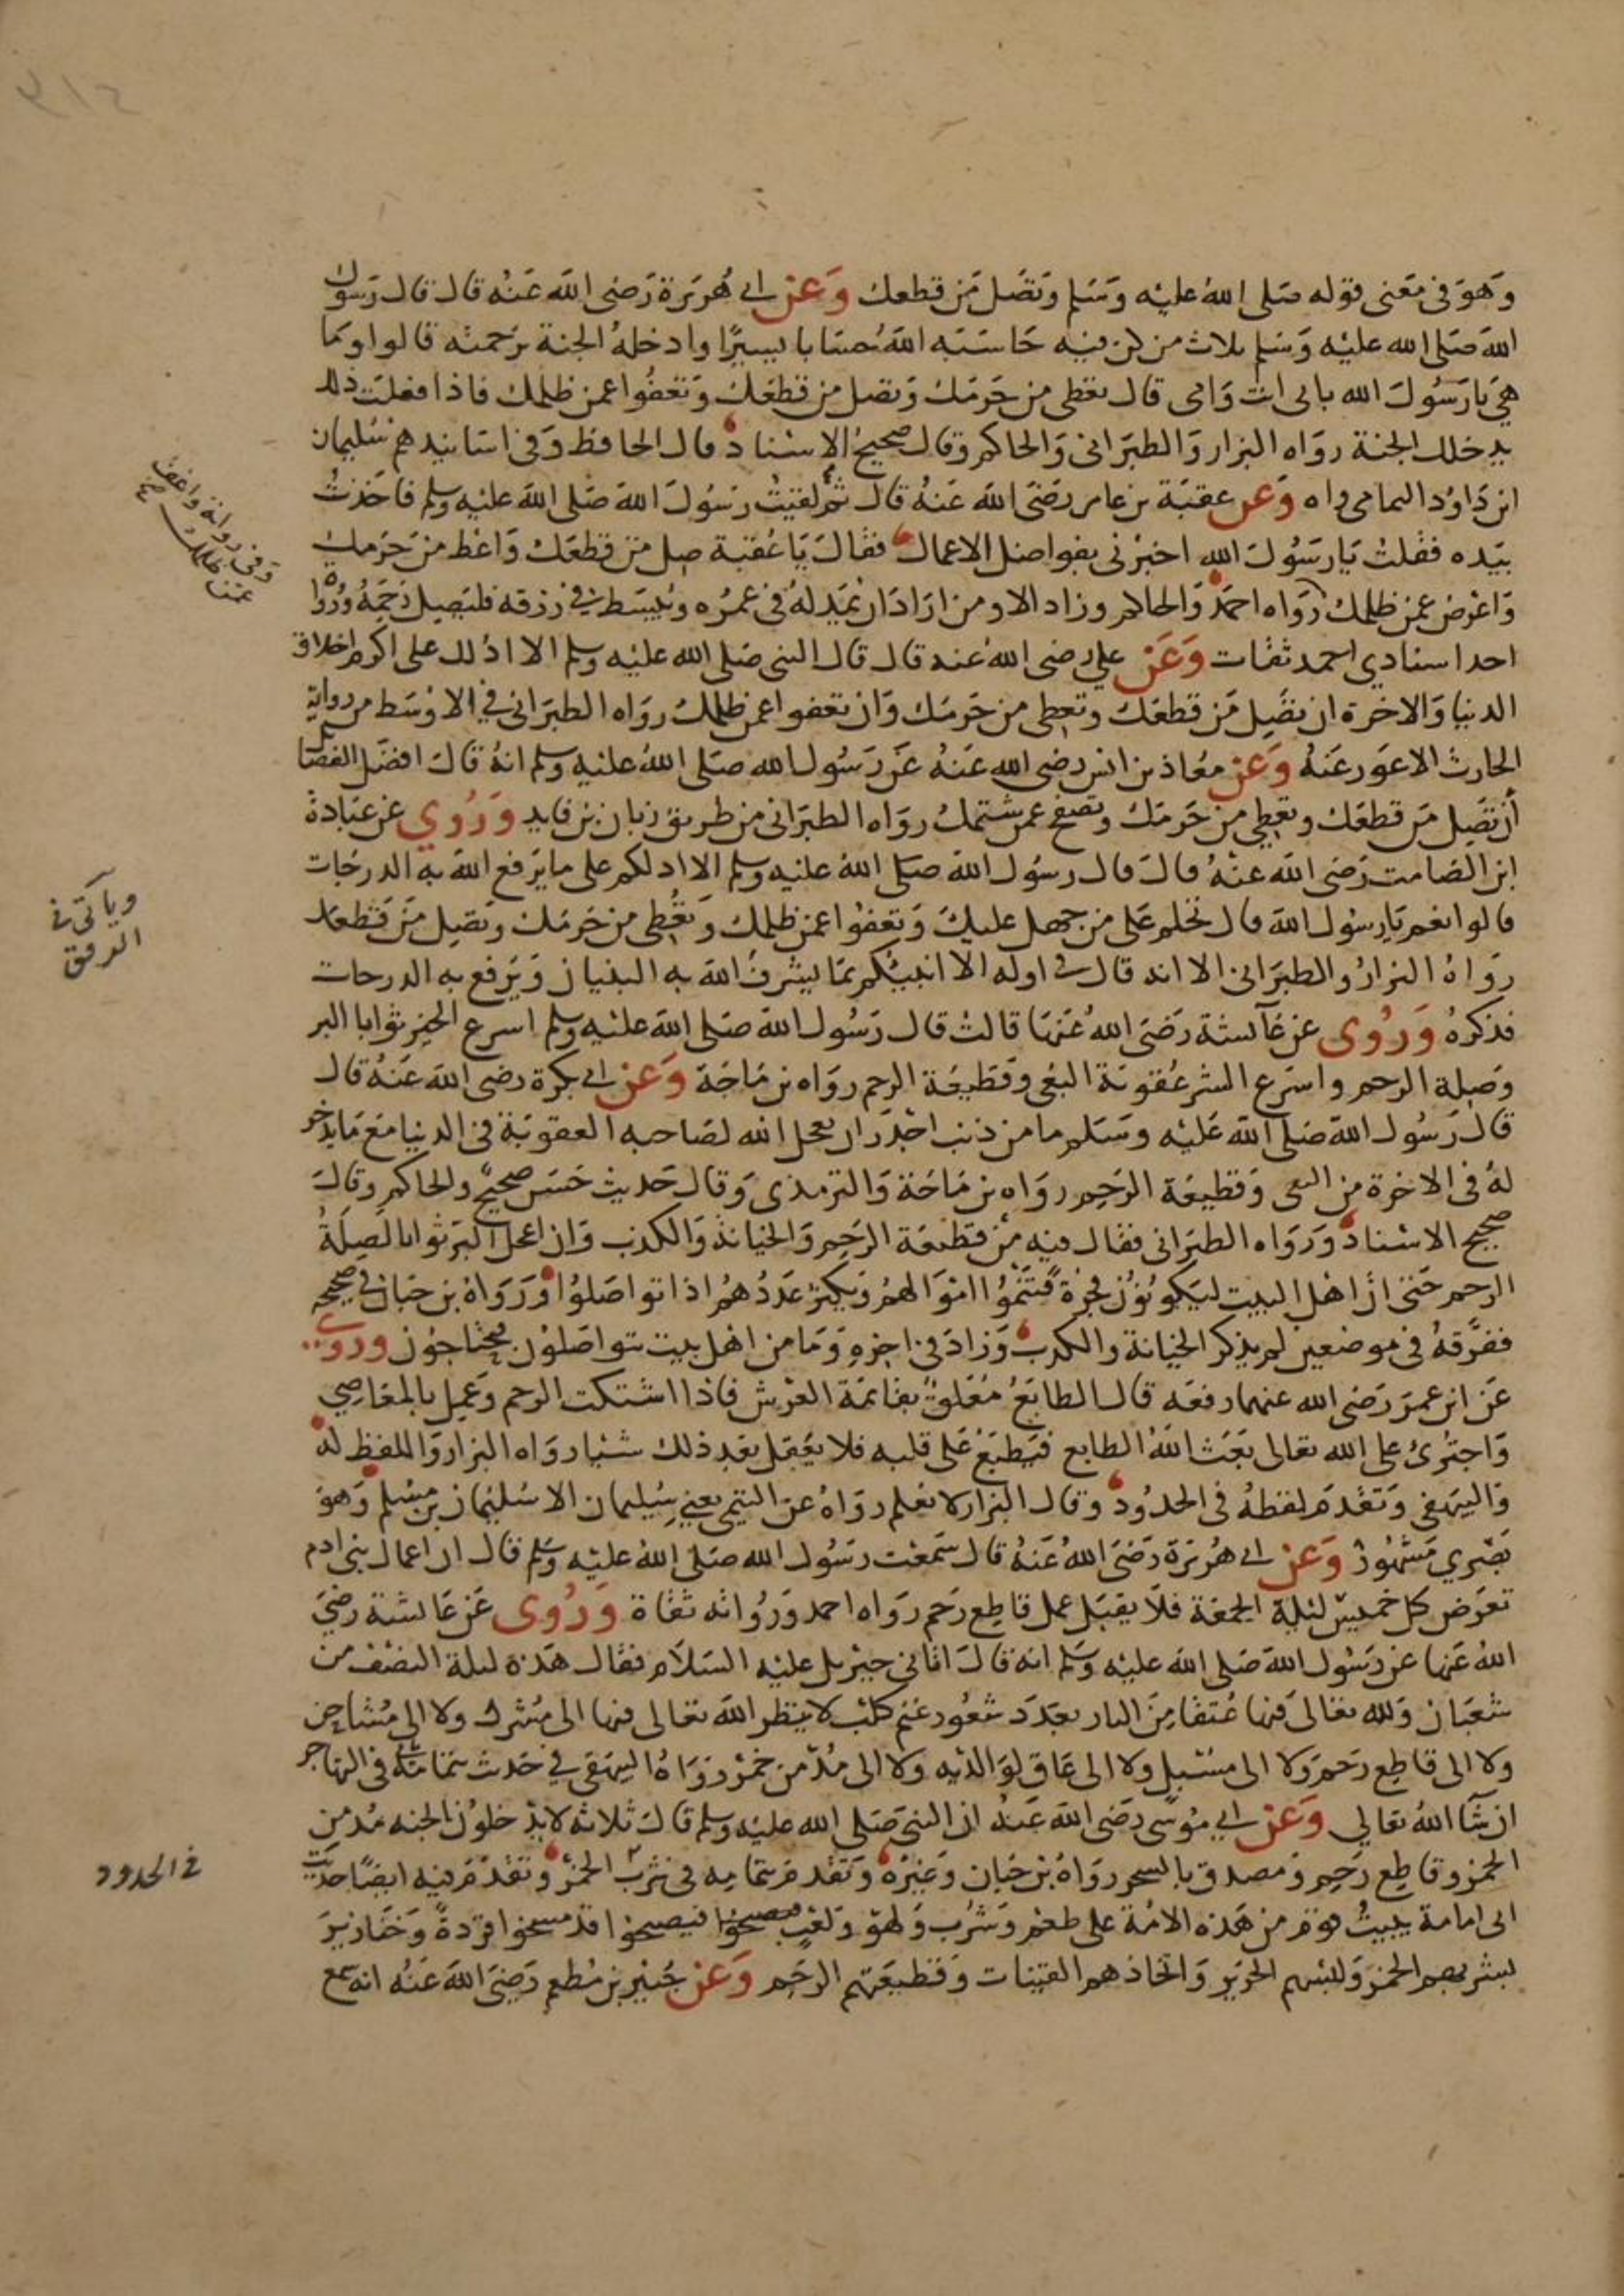 ٣١٤
وهو في معنى قوله صلى الله عليه وسلم وتصل من قطعك وعن ابي هريرة رضي الله عنه قال قال رسول
الله صلى الله عليه وسلم ثلاث من كن فيه حاسبه الله حسابا يسيرا وادخله الجنة برحمته قالوا وما
هي يا رسول الله بابي انت وامي قال تعطي من حرمك وتصل من قطعك وتعفوا عمن ظلمك فاذا فعلت ذلك
يدخلك الجنة رواه البزار والطبراني والحاكم وقال صحيح الاسناد قال الحافظ وفي اسانيدهم سليمان
ابن داود اليمامي واه وعن عقبة بن عامر رضي الله عنه قال ثم لقيت رسول الله صلى الله عليه وسلم فاخذت
بيده فقلت يا رسول الله اخبرني بفواضل الاعمال فقال يا عقبة صل من قطعك واعط من حرمك
واعرض عمن ظلمك رواه احمد والحاكم وزاد الا ومن اراد ان يمد له في عمره ويبسط في رزقه فليصل رحمه ورواة
احد اسنادي احمد ثقات وعن علي رضي الله عنه قال قال النبي صلى الله عليه وسلم الا ادلك على اكرم اخلاق
الدنيا والاخرة ان تصل من قطعك وتعطي من حرمك وان تعفوا عمن ظلمك رواه الطبراني في الاوسط من رواية
الحارث الاعور عنه وعن معاذ بن انس رضي الله عنه عن رسول الله صلى الله عليه وسلم انه قال افضل الفضائل
ان تصل من قطعك وتعطي من حرمك وتصفح عمن شتمك رواه الطبراني من طريق زبان بن فايد وروي عن عبادة
ابن الصامت رضي الله عنه قال قال رسول الله صلى الله عليه وسلم الا ادلكم على ما يرفع الله به الدرجات
قالوا نعم يا رسول الله قال تحلم على من جهل عليك وتعفوا عمن ظلمك وتعطي من حرمك وتصل من قطعك
رواه البزار والطبراني الا انه قال في اوله الا انبيكم بما يشرف الله به البنيان ويرفع به الدرجات
فذكره وروي عن عآئشة رضي الله عنها قالت قال رسول الله صلى الله عليه وسلم اسرع الخير ثوابا البر
وصلة الرحم واسرع الشر عقوبة البغي وقطيعة الرحم رواه بن ماجة وعن ابي بكرة رضي الله عنه قال
قال رسول الله صلى الله عليه وسلم ما من ذنب اجدر ان يعجل الله لصاحبه العقوبة في الدنيا مع ما يدخر
له في الاخرة من البغي وقطيعة الرحم رواه بن ماجة والترمذي وقال حديث حسن صحيح والحاكم وقال
صحيح الاسناد ورواه الطبراني فقال فيه من قطيعة الرحم والخيانة والكذب وان اعجل البر ثوابا لصلة
الرحم حتى ان اهل البيت ليكونون فجرة فتنموا اموالهم ويكثر عددهم اذا تواصلوا ورواه بن حبان في صحيحه
ففرقه في موضعين لم يذكر الخيانة والكذب وزاد في اخره وما من اهل بيت يتواصلون فيحتاجون وروي
عن ابن عمر رضي الله عنهما رفعه قال الطابع معلق بقائمة العرش فاذا اشتكت الرحم وعمل بالمعاصي
واجترئ على الله تعالى بعث الله الطابع فيطبع على قلبه فلا يعقل بعد ذلك شيئا رواه البزار واللفظ له
والبيهقي وتقدم لفظه في الحدود وقال البزار لا نعلم رواه عن التيمي يعني سليمان الا سليمان بن مسلم وهو
بصري مشهور وعن ابي هريرة رضي الله عنه قال سمعت رسول الله صلى الله عليه وسلم قال ان اعمال بني ادم
تعرض كل خميس ليلة الجمعة فلا يقبل عمل قاطع رحم رواه احمد ورواته ثقاة وروي عن عائشة رضي
الله عنها عن رسول الله صلى الله عليه وسلم انه قال اتاني جبريل عليه السلام فقال هذه ليلة النصف من
شعبان ولله تعالى فيها عتقا من النار بعدد شعور غنم كلب لا ينظر الله تعالى فيها الى مشرك ولا الى مشاحن
ولا الى قاطع رحم ولا الى مسبل ولا الى عاق لوالديه ولا الى مدمن خمر رواه البيهقي في حديث بتمامه في التهاجر
ان شآ الله تعالى وعن ابي موسى رضي الله عنه ان النبي صلى الله عليه وسلم قال ثلاثة لا يدخلون الجنه مدمن
الخمر وقاطع رحم ومصدق بالسحر رواه بن حبان وغيره وتقدم بتمامه في شرب الخمر وتقدم فيه ايضا حديث
ابي امامة يبيت قوم من هذه الامة على طعم وشرب ولهو ولعب فيصبحوا قد مسخوا قردة وخنازير
بشربهم الخمر ولبسهم الحرير واتخاذهم القينات وقطيعتهم الرحم وعن جبير بن مطعم رضي الله عنه انه سمع
وفي رواية واعف
عمن ظلمك صح
وياتي في
الرفق
في الحدود